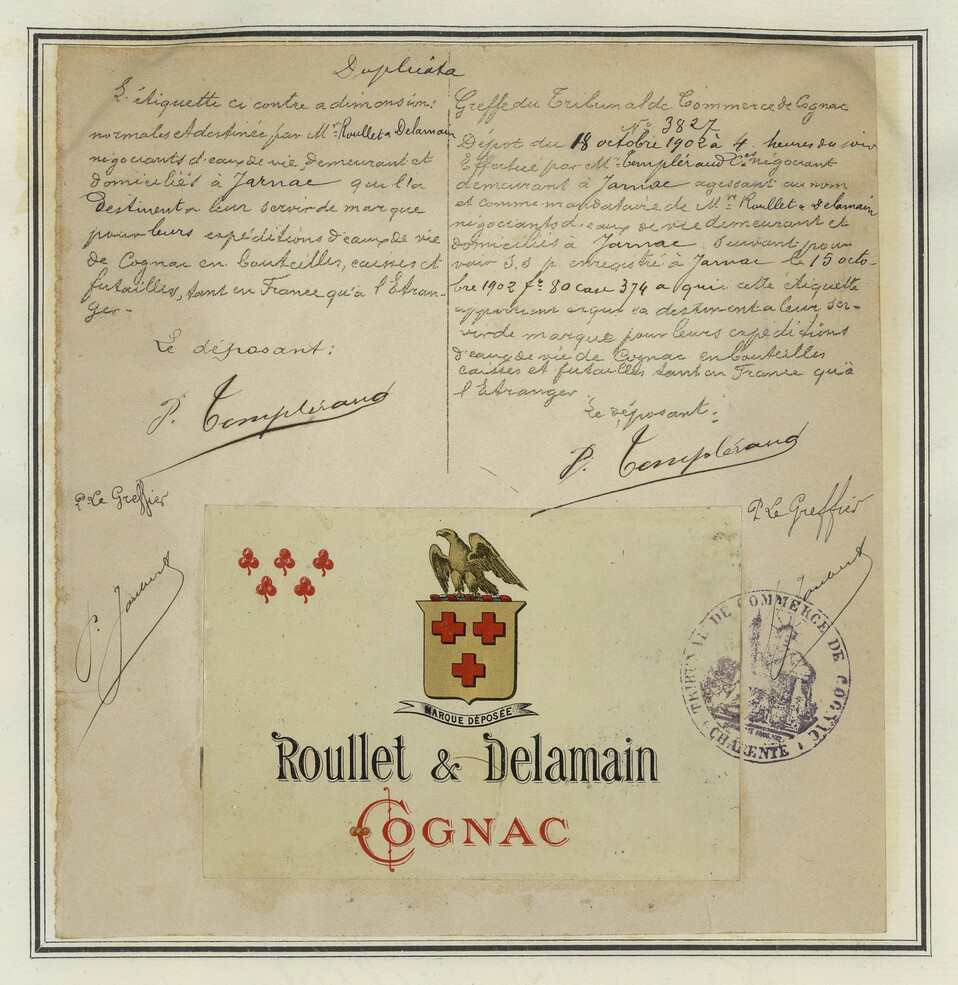 Duplicata
L'étiquette ci contre a dimensions
normales et destinée par Mrs Roullet & Delamain
négociants d'eaux de vie demeurant et
domiciliés à Jarnac qui l'a
destinent a leur servir de marque
pour leurs expéditions d'eaux de vie
de Cognac en bouteilles, caisses et
futailles, tant en France qu'à l'Etran-
ger.-
Le déposant:
P. Templéraud
P. Le Greffier
Greffe du Tribunal de Commerce de Cognac
No 3827
Dépot du 18 octobre 1902 à 4 heures du soir
Effectué par Mr Templéraud négociant
demeurant à Jarnac agissant au nom
et comme mandataire de Mrs Roullet & Delamain
négociants d'eaux de vie demeurant et
domiciliés à Jarnac suivant pou-
voir S.S.p. enregistré à Jarnac le 15 octo-
bre 1902 fo 80 case 374 a qui cette étiquette
appartient et qui la destinent a leur ser-
vir de marque pour leurs expéditions
d'eaux de vie de Cognac en bouteilles
caisses et futailles tant en France qu'à
l'Etranger
Le déposant:
P. Templéraud
P. Le Greffier
MARQUE DÉPOSÉE
Roullet & Delamain
COGNAC
TRIBUNAL DE COMMERCE DE COGNAC
(CHARENTE)